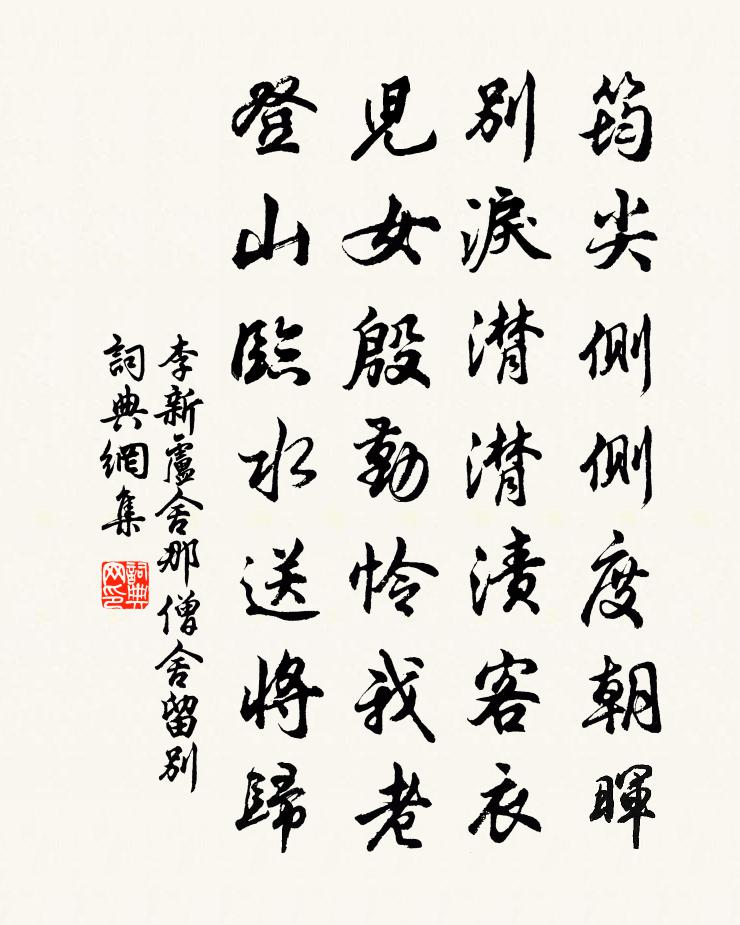 筠尖側側度朝暉
別淚潸潸漬客衣
兒女殷勤怜我老
登山臨水送將歸
李新盧舍那僧舍留別
詞典網集
詞典网印